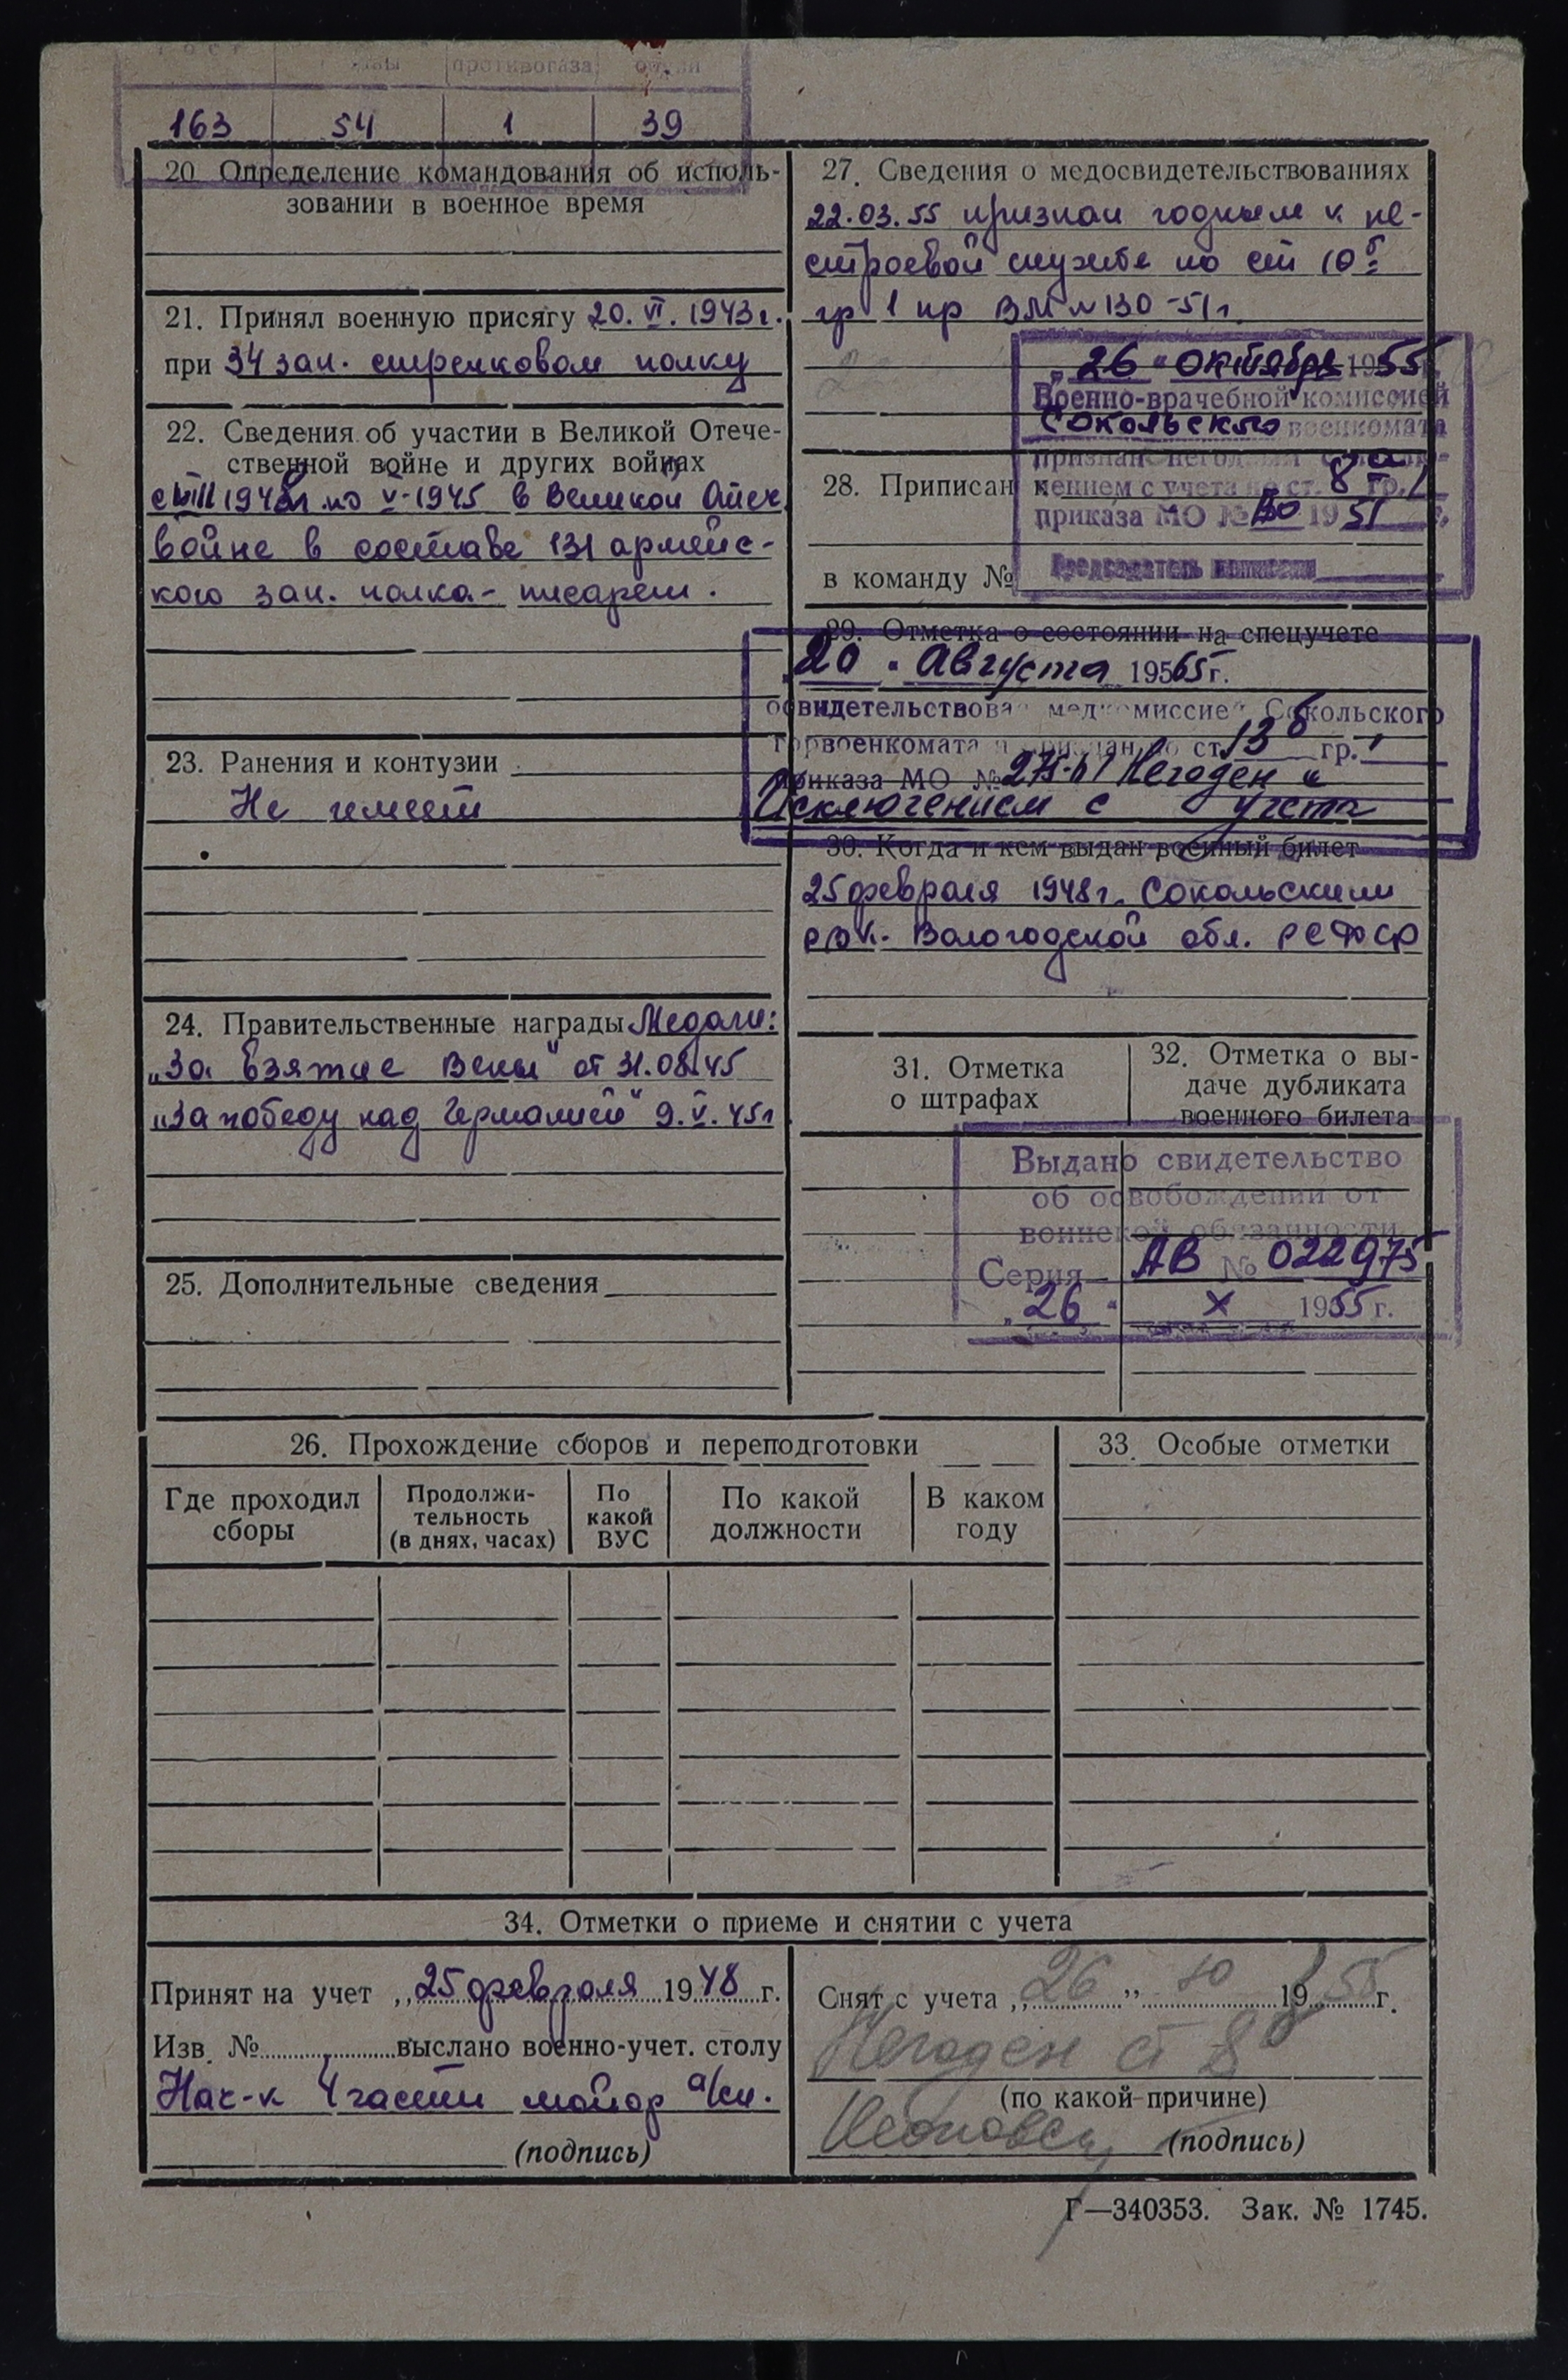 противогаза
163 54 1 39
20. Определение командования об исполь-
зовании в военное время
21. Принял военную присягу 20. VI. 1943 г.
при 34 зап. стрелковом полку
22. Сведения об участии в Великой Отече-
ственной войне и других войнах
по V-1945 в Великой Отеч
войне в составе 131 армейс-
кого зап. полка - писарем.
23. Ранения и контузии
Не имеет
24. Правительственные награды Медали:
„За взятие Вены" от 31.08.45
„За победу над Германией" 9.V.45г
25. Дополнительные сведения
27. Сведения о медосвидетельствованиях
22.03.55 признан годным к не-
строевой службе по ст 10б
гр 1 пр ВМ №130-51г.
„26" октября 1955 г.
Военно-врачебной комиссией
Сокольского военкомата
признан негодным с
28. Приписан к
чением с учета по ст. 8 гр. 1
приказа МО № 1951 г.
в команду №
Председатель комиссии
29. Отметка о состоянии на спецучете
„20" Августа 19565 г.
освидетельствован медкомиссией Сокольского
горвоенкомата и признан по ст. 13 б гр. 1
приказа МО № Негоден с
Исключением с учета
30. Когда и кем выдан военный билет
25 февраля 1948 г. Сокольским
РВК. Вологодской обл. РСФСР
31. Отметка
о штрафах
32. Отметка о вы-
даче дубликата
военного билета
Выдано свидетельство
об освобождении от
воинской обязанности
Серия АВ № 022975
„26" X 1955 г.
26. Прохождение сборов и переподготовки
Где проходил
сборы
Продолжи-
тельность
(в днях, часах)
По
какой
ВУС
По какой
должности
В каком
году
33. Особые отметки
34. Отметки о приеме и снятии с учета
Принят на учет „25 февраля 1948 г.
Изв. № выслано военно-учет. столу
Нач-к 4 части майор а/сл.
(подпись)
Снят с учета „26" 10 1955 г.
Негоден ст 8б
(по какой причине)
(подпись)
Г—340353. Зак. № 1745.